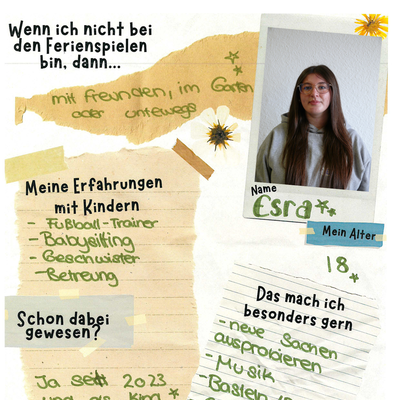 Wenn ich nicht bei
den Ferienspielen
bin, dann...
mit freunden, im Garten
oder unterwegs
Name
Esra
Mein Alter
18
Meine Erfahrungen
mit Kindern
- Fußball-Trainer
- Babysitting
- Geschwister
- Betreung
Schon dabei
gewesen?
Ja seit 2023
und als Kind
Das mach ich
besonders gern
- neue Sachen
ausprobieren
- Musik
- Basteln